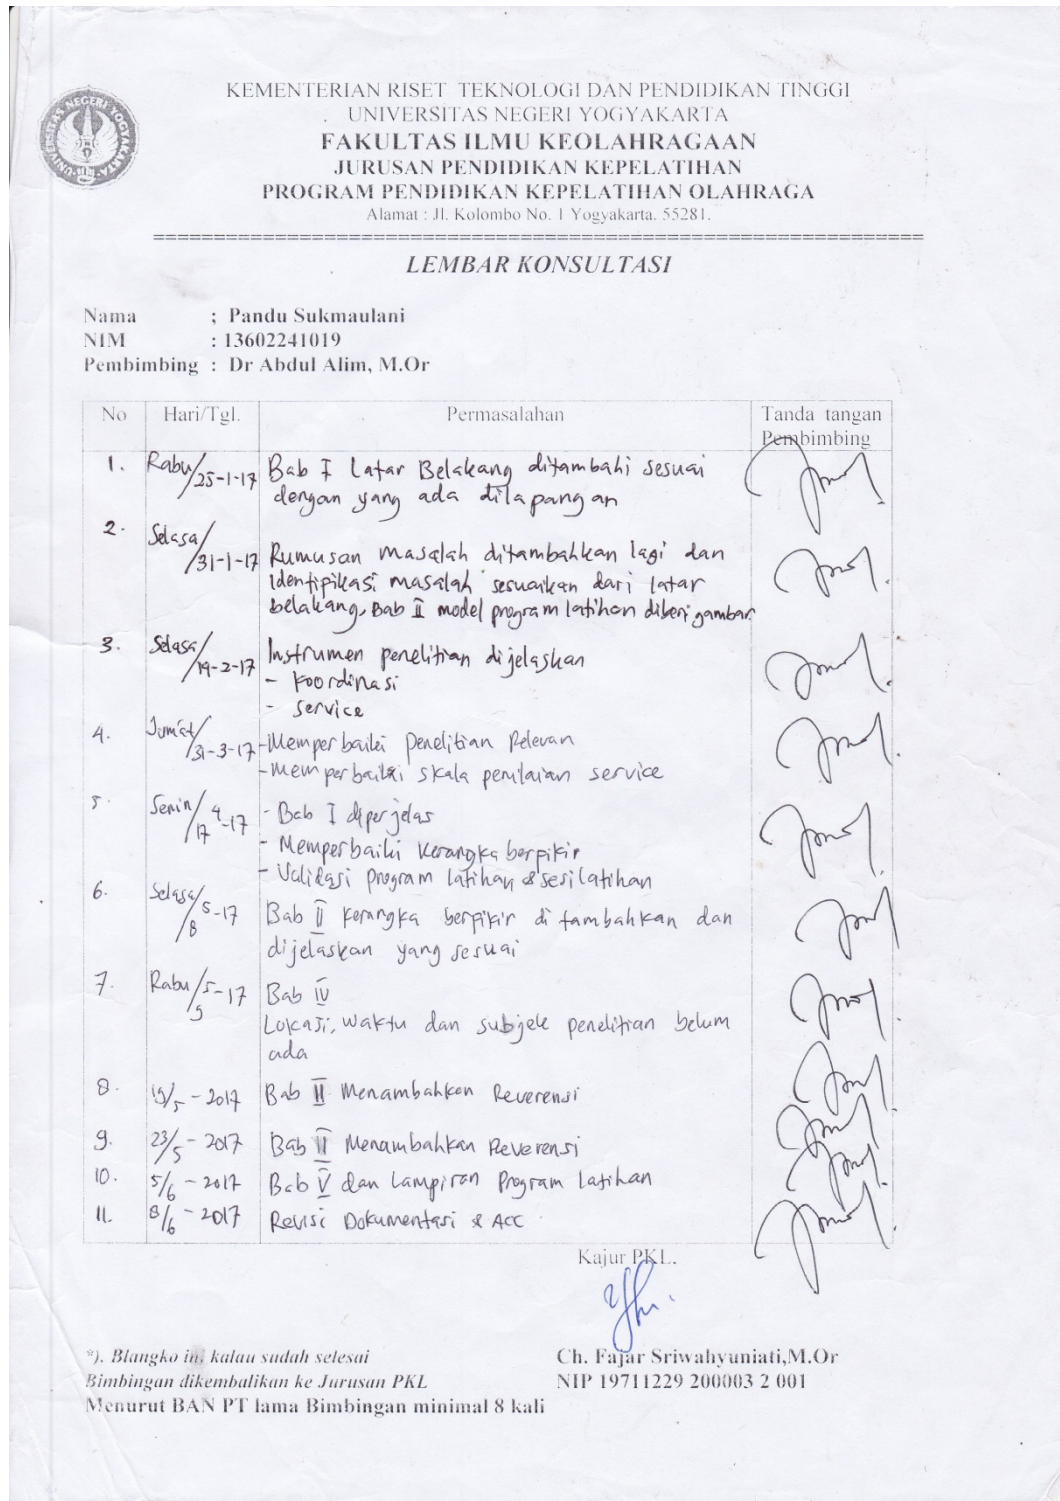 KEMENTERIAN RISET TEKNOLOGI DAN PENDIDIKAN TINGGI
UNIVERSITAS NEGERI YOGYAKARTA
FAKULTAS ILMU KEOLAHRAGAAN
JURUSAN PENDIDIKAN KEPELATIHAN
PROGRAM PENDIDIKAN KEPELATIHAN OLAHRAGA
Alamat : Jl. Kolombo No. 1 Yogyakarta. 55281.
LEMBAR KONSULTASI
Nama ; Pandu Sukmaulani
NIM : 13602241019
Pembimbing : Dr Abdul Alim, M.Or
No Hari/Tgl. Permasalahan Tanda tangan
Pembimbing
1. Rabu/25-1-17 Bab I Latar Belakang ditambahi sesuai
dengan yang ada dilapangan
2. Selasa/31-1-17 Rumusan masalah ditambahkan lagi dan
identipikasi masalah sesuaikan dari latar
belakang, Bab II model program latihan diberi gambar.
3. Selasa/19-2-17 Instrumen penelitian dijelaskan
- koordinasi
- service
4. Jum'at/31-3-17 - Memperbaiki penelitian Relevan
- Memperbaiki skala penilaian service
5. Senin/17 4-17 - Bab I diperjelas
- Memperbaiki kerangka berpikir
- Validasi program latihan & sesi latihan
6. Selasa/8 5-17 Bab II kerangka berpikir di tambahkan dan
dijelaskan yang sesuai
7. Rabu/9 5-17 Bab IV
Lokasi, waktu dan subjek penelitian belum
ada
8. 19/5-2017 Bab II Menambahkan Reverensi
9. 23/5-2017 Bab II Menambahkan Reverensi
10. 5/6-2017 Bab V dan Lampiran Program Latihan
11. 8/6-2017 Revisi Dokumentasi & ACC
Kajur PKL.
*). Blangko ini kalau sudah selesai
Bimbingan dikembalikan ke Jurusan PKL
Menurut BAN PT lama Bimbingan minimal 8 kali
Ch. Fajar Sriwahyuniati,M.Or
NIP 19711229 200003 2 001